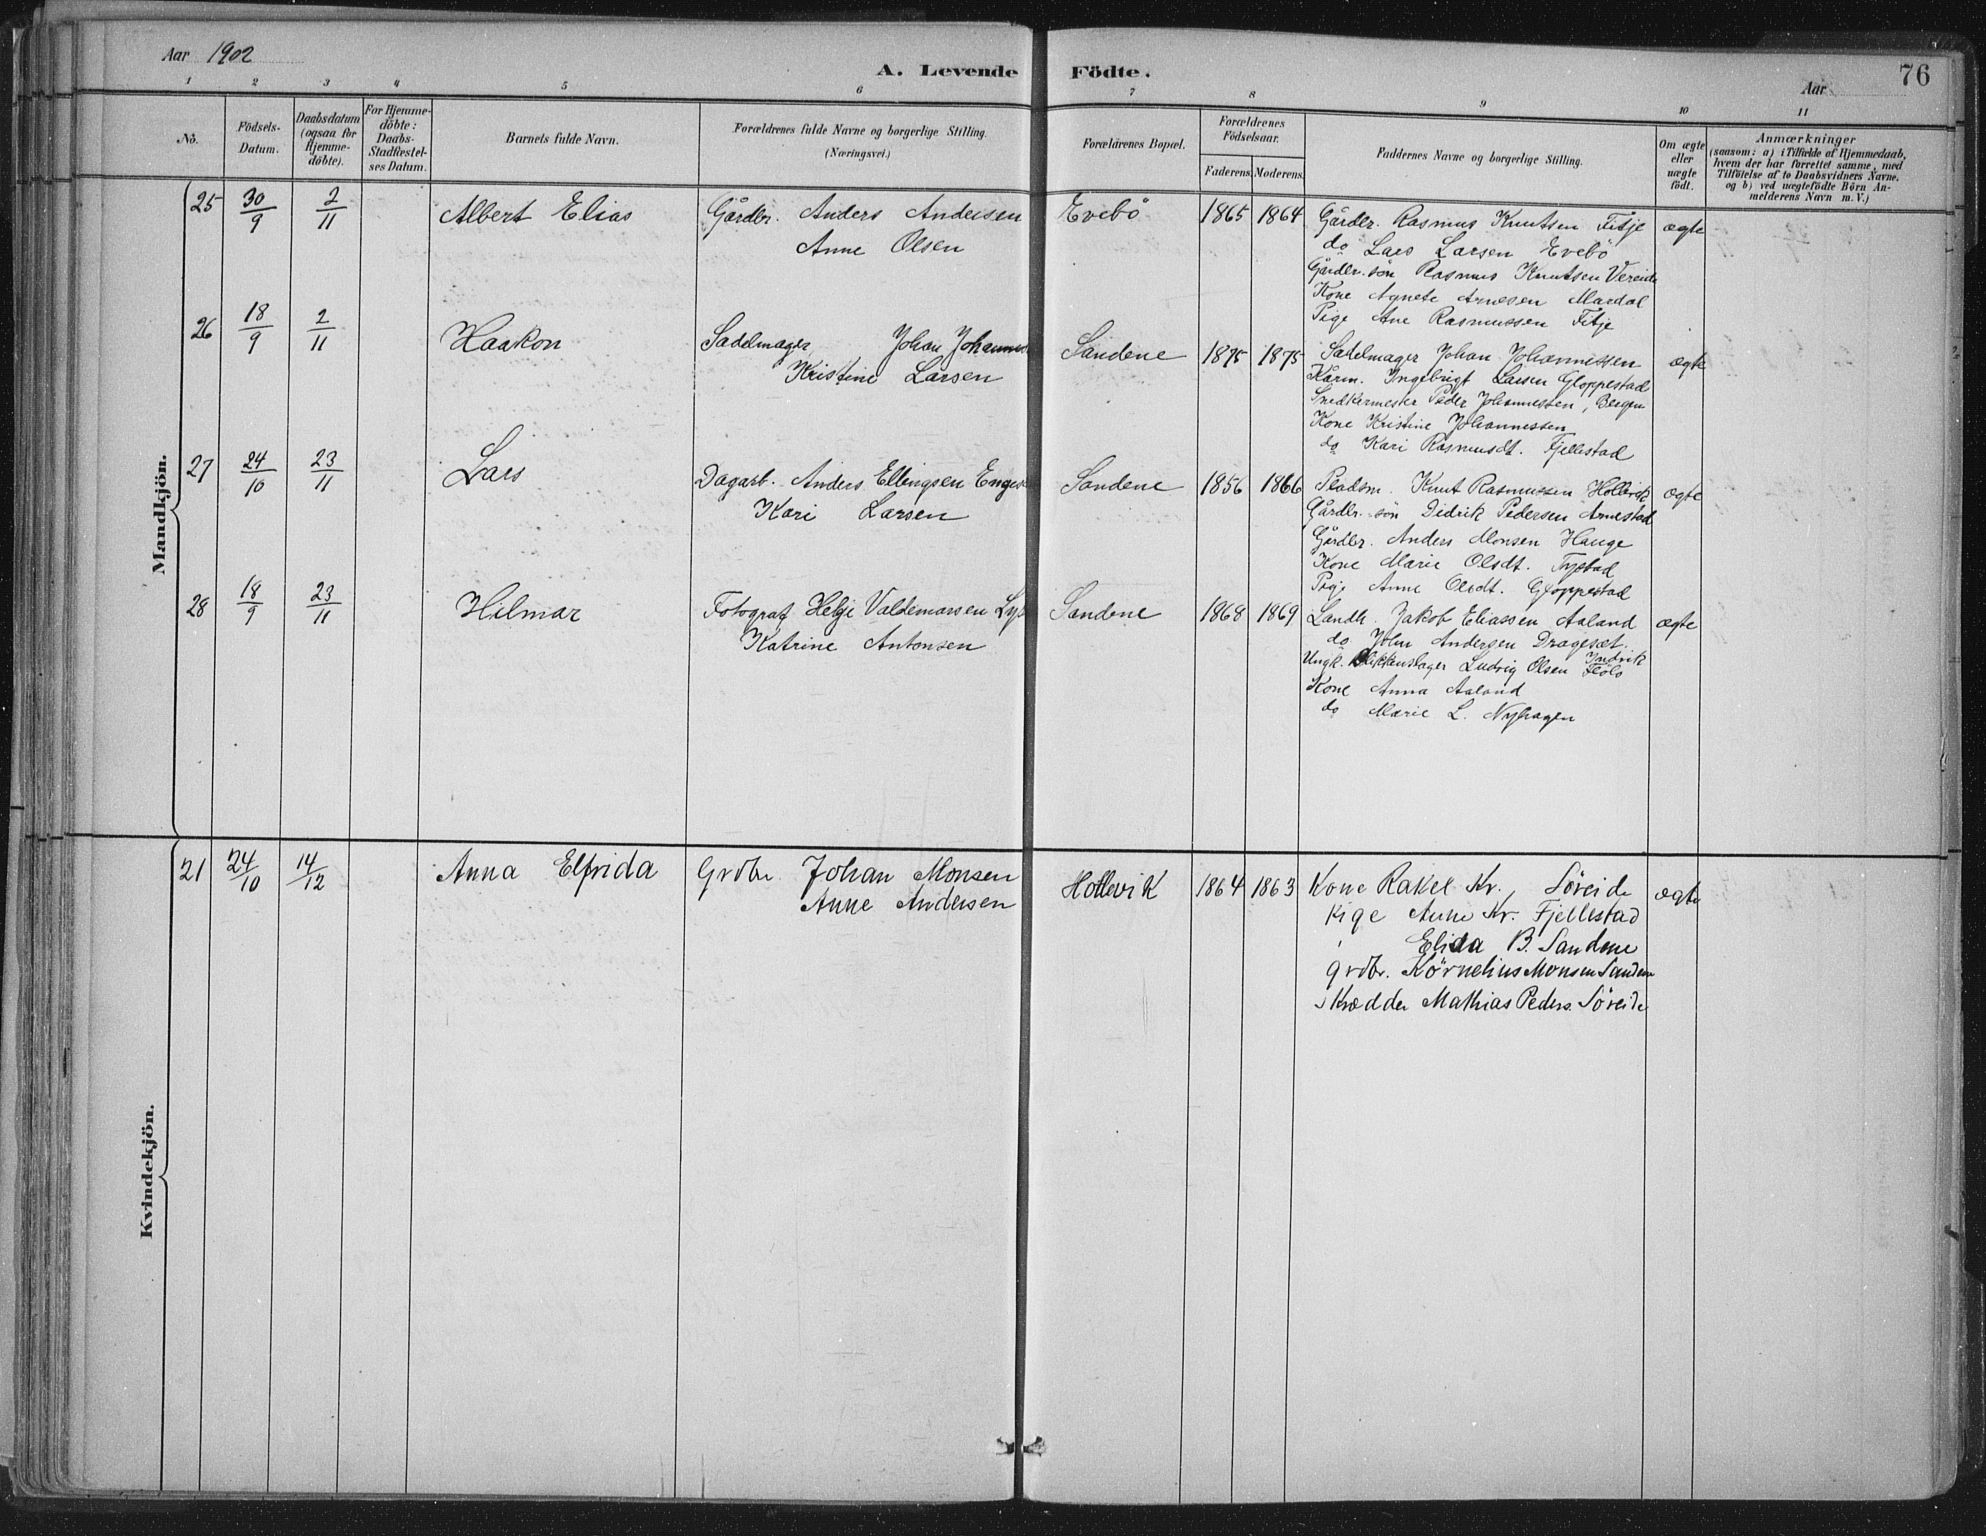 Aar 1902
A. Levende Födte.
Aar
76
1 2 3 4 5 6 7 8 9 10 11
No.
Födsels-
Datum.
Daabsdatum
(ogsaa for
Hjemme-
döbte).
For Hjemme-
döbte:
Daabs-
Stadfæstel-
ses Datum.
Barnets fulde Navn.
Forældrenes fulde Navne og borgerlige Stilling.
(Næringsvei.)
Forældrenes Bopæl.
Forældrenes
Födselsaar.
Faderens. Moderens.
Faddernes Navne og borgerlige Stilling.
Om ægte
eller
uægte
födt.
Anmærkninger
(saasom: a) i Tilfælde af Hjemmedaab,
hvem der har forrettet samme, med
Tilföielse af to Daabsvidners Navne.
og b) ved uægtefödte Börn An-
melderens Navn m.V.)
Mandkjön.
25 30/9 2/11 Albert Elias Gårdbr. Anders Andersen Evebö 1865 1864 Gårdbr. Rasmus Knutsen Fitje ægte
Anne Olsen
do Lars Larsen Evebö
Gårdbr. sön Rasmus Knutsen Vereide
Kone Agnete Arnesen Mardal
Pige Ane Rasmussen Fitje
26 18/9 2/11 Haakon Sadelmager Johan Johannes Sandene 1875 1875 Sadelmager Johan Johannessen ægte
Kristine Larsen
Kårm. Ingebrigt Larsen Gloppestad
Snedkermester Peder Johannessen, Bergen
Kone Kristine Johannessen
do Kari Rasmusdt. Fjellestad
27 24/10 23/11 Lars Dagarb. Anders Ellingsen Sandene 1856 1866 Pladsm. Knut Rasmussen Hollevik ægte
Kari Larsen
Gårdbr. sön Didrik Pedersen Arnestad
Gårdbr. Anders Monsen Hauge
Kone Marie Olsdt. Tystad
Pige Anne Olsdt. Gloppestad
28 18/9 23/11 Hilmar Fotograf Helge Valdemarsen Sandene 1868 1869 Landh. Jakob Eliassen Aaland ægte
Katrine Antonsen
do John Andersen Drageset
Ungk. Blikkenslager Ludvig Olsen Indvik
Flolo
Kone Anna Aaland
do Marie L. Nyhagen
Kvindekjön.
21 24/10 14/12 Anna Elfrida Grdbr Johan Monsen Hollevik 1864 1863 Kone Rakel Kr. Söreide ægte
Anne Andersen
Pige Anne Kr. Fjellestad
Elida B. Sandene
grdbr. Körnelius Monsen Sandene
Skrædder Mathias Peders. Söreide